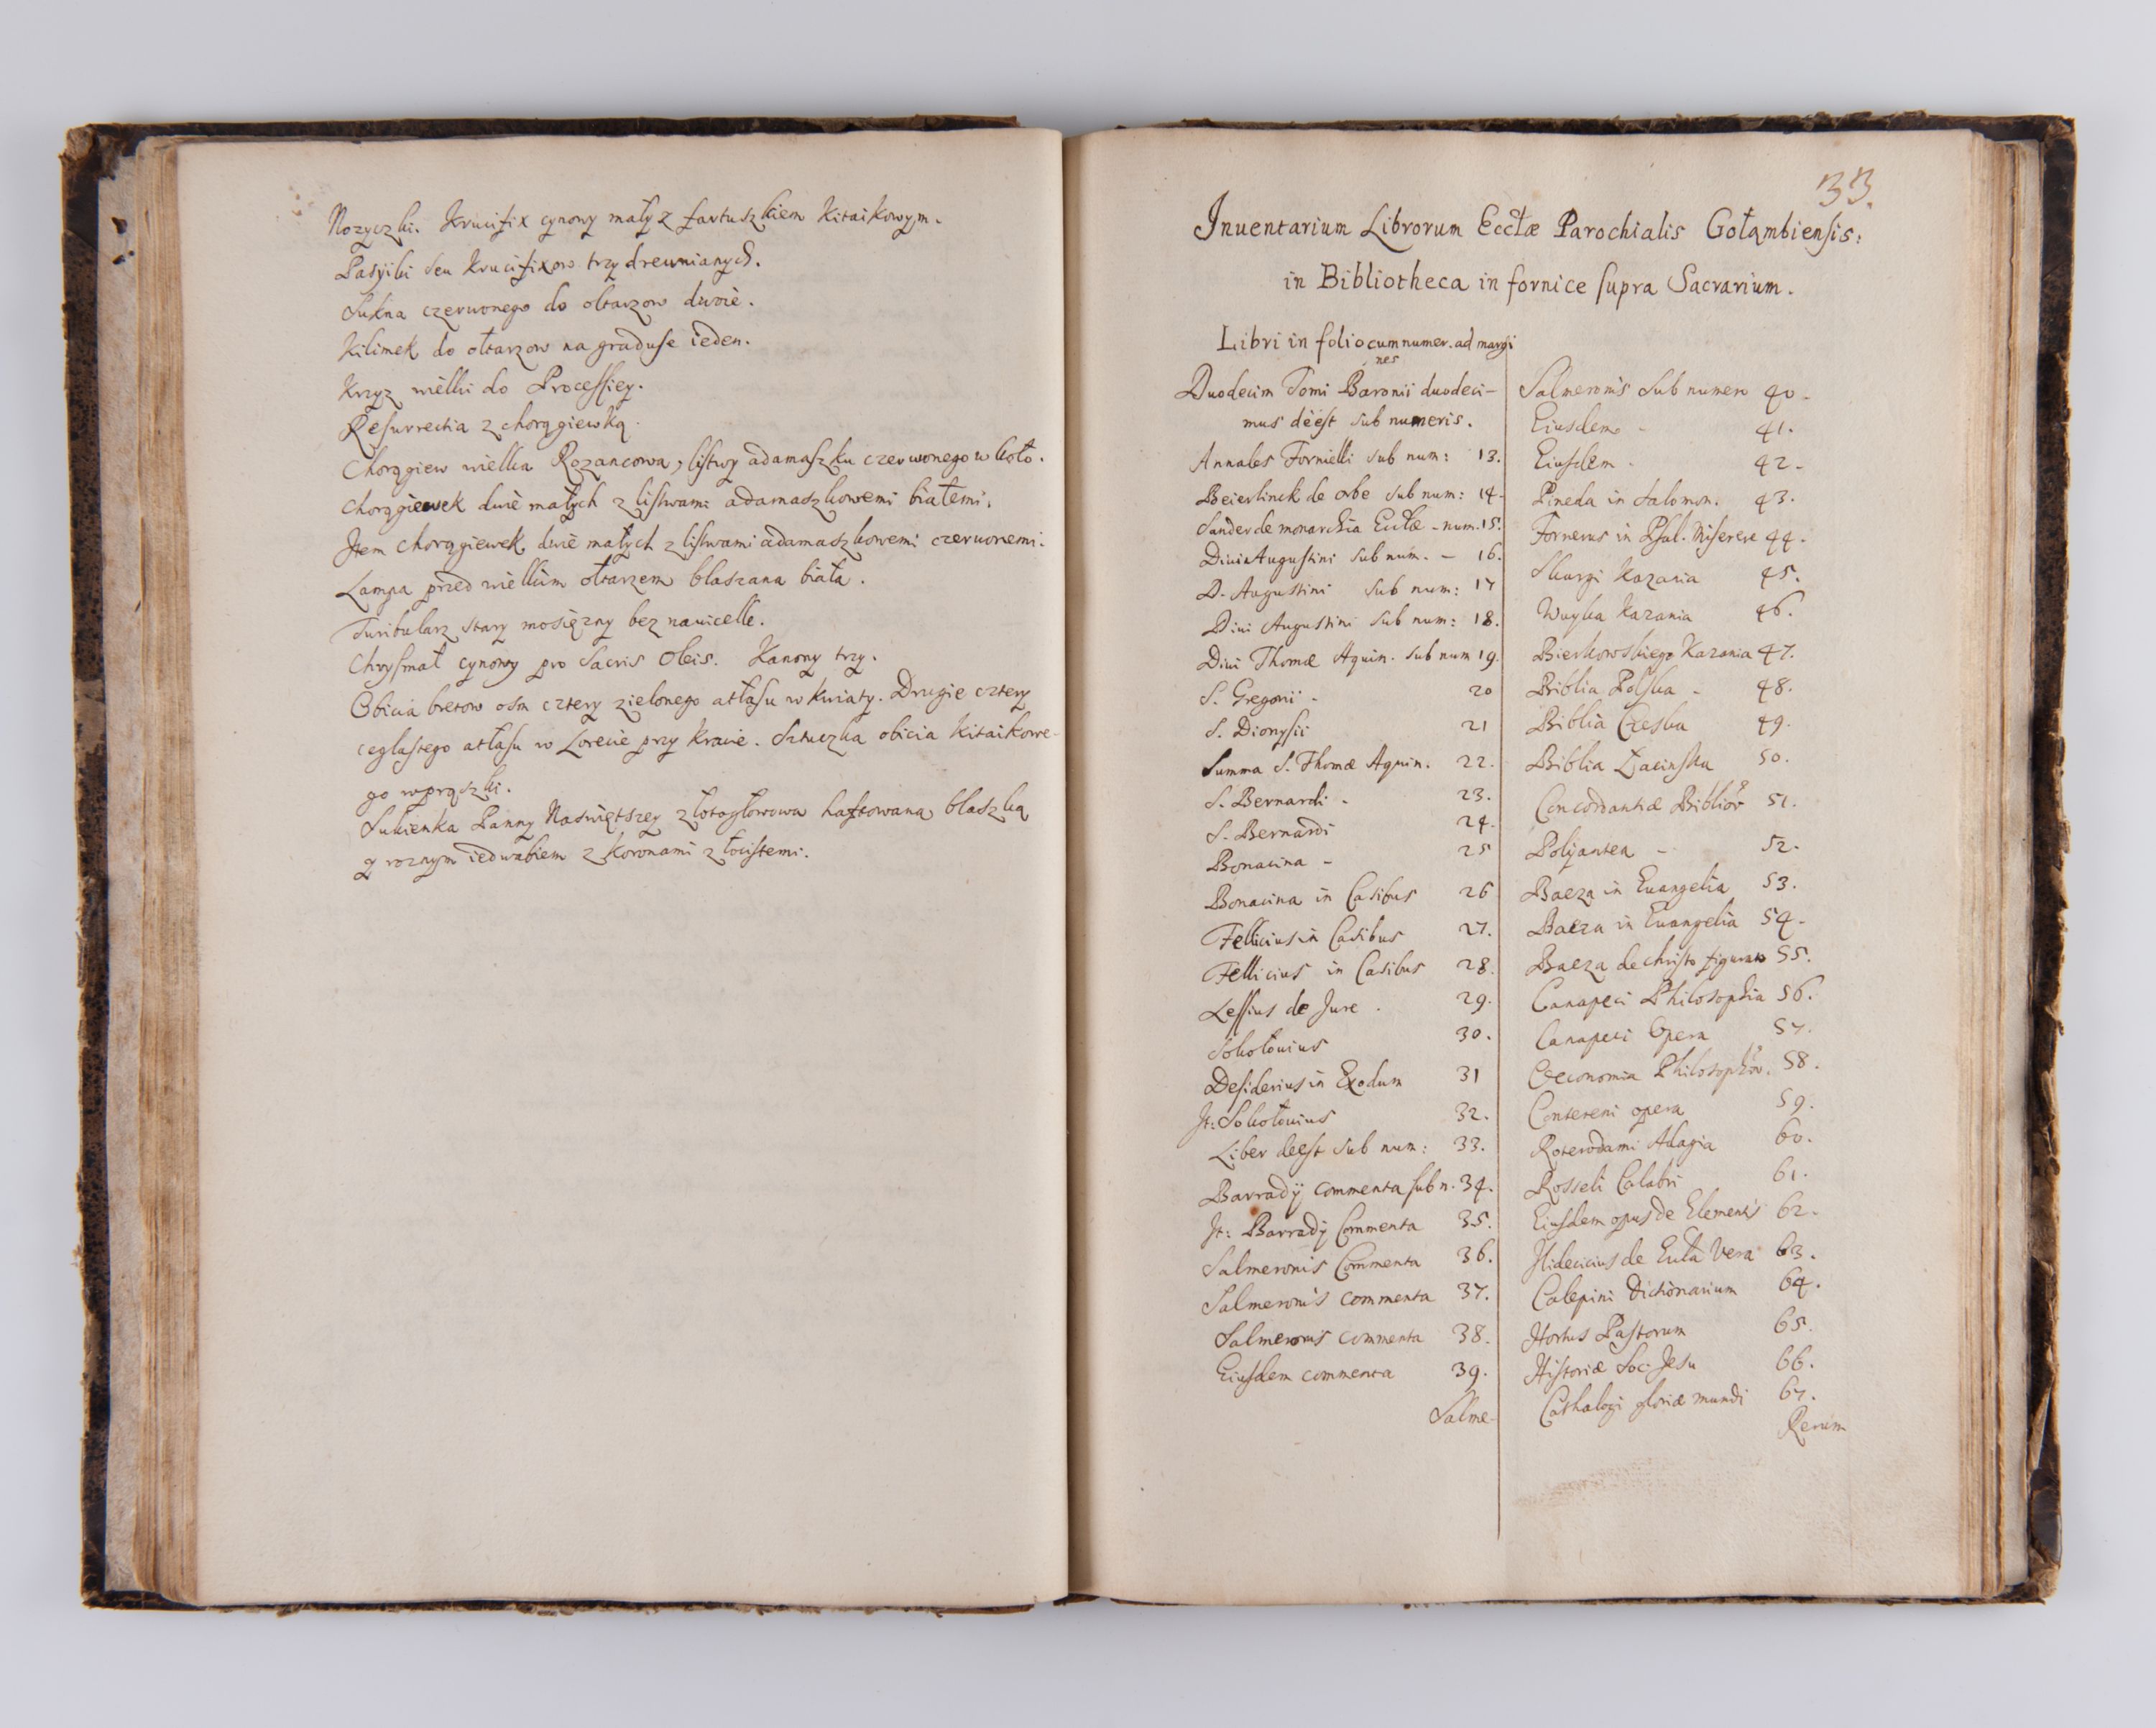 Nozyczki. Krucifix cynowy mały z fartuszkiem Kitaikowym.
Pasyiki seu Krucifixow trzy drewnianych.
Sukna czerwonego do ołtarzow dwoie.
Kilimek do ołtarzow na graduse ieden.
Krzyz wielki do Processiey.
Resurrectia z chorągiewką.
Chorągiew wielka Rozancowa, listwy adamaszku czerwonego w koło.
Chorągiewek dwie małych z listwami adamaszkowemi białemi.
Jtem chorągiewek dwie małych z listwami adamaszkowemi czerwonemi.
Lampa przed wielkim ołtarzem blaszana biała.
Turibularz stary mosięzny bez nauicelle.
Chrysmał cynowy pro Sacris Oleis. Kanony trzy.
Obicia bretow osm cztery zielonego atłasu w kwiaty. Drugie cztery
ceglastego atłasu w Lorecie przy kracie. Sztuczka obicia Kitaikowe-
go w prązki.
Sukienka Panny Naswiętszey złotogłowowa haftowana blaszką
y roznym iedwabiem z koronami złocistemi.
33.
Inuentarium Librorum Ecctæ Parochialis Gołąmbiensis:
in Bibliotheca in fornice supra Sacrarium.
Libri in folio cum numer. ad margi
nes
Duodecim Tomi Baronii duodeci-
mus deest sub numeris.
Annales Tornielli sub num: 13.
Beierlinck de orbe sub num: 14.
Sander de monarchia Ecctæ - num. 15.
Diui Augustini sub num. - 16.
D. Augustini sub num: 17
Diui Augustini sub num: 18.
Diui Thomæ Aquin. sub num 19.
S. Gregorii - 20
S. Dionysii 21
Summa S. Thomæ Aquin. 22.
S. Bernardi - 23.
S. Bernardi 24.
Bonacina - 25
Bonacina in Casibus 26
Fellicius in Casibus 27.
Fellicius in Casibus 28.
Lessius de Jure . 29.
Sokołouius 30.
Desiderius in Exodum 31
Jt: Sokołouius 32.
Liber deest sub num: 33.
Barradÿ commenta sub n. 34.
Jt: Barradÿ Commenta 35.
Salmeronis Commenta 36.
Salmeronis commenta 37.
Salmeronis commenta 38.
Eiusdem commenta 39.
Salme-
Salmeronis sub numero 40.
Eiusdem - 41.
Eiusdem - 42.
Pineda in Salomon. 43.
Fornerus in Psal. Miserere 44.
Skargi Kazania 45.
Wuyka Kazania 46.
Bierkowskiego Kazania 47.
Biblia Polska - 48.
Biblia Czeska 49.
Biblia Łacinska 50.
Concordantiæ Biblior 51.
Polÿantea - 52.
Baeza in Euangelia 53.
Baeza in Euangelia 54.
Baeza de christo figurato 55.
Canapeci Philosophia 56.
Canapeci Opera 57.
Oeconomia Philosophor. 58.
Contereni opera 59.
Roterodami Adagia 60.
Rosseli Calabri 61.
Eiusdem opus de Elementis 62.
de Eccła Vera 63.
Calepini Dictionarium 64.
Hortus Pastorum 65.
Historiæ Soc: Jesu 66.
Cathalogi gloriæ mundi 67.
Rerum